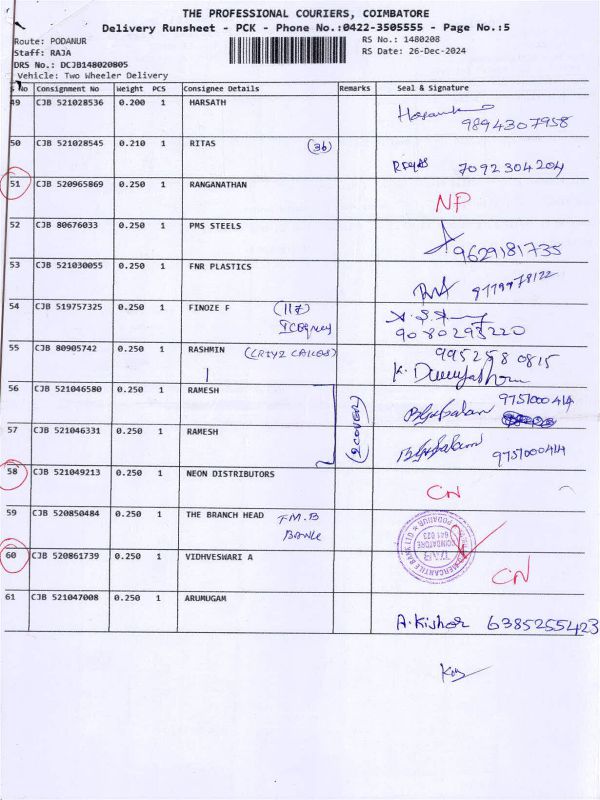 THE PROFESSIONAL COURIERS, COIMBATORE
Delivery Runsheet - PCK - Phone No.:0422-3505555 - Page No.:5
Route: PODANUR RS No.: 1480208
Staff: RAJA RS Date: 26-Dec-2024
DRS No.: DCJB148020805
Vehicle: Two Wheeler Delivery
S No Consignment No Weight PCS Consignee Details Remarks Seal & Signature
49 CJB 521028536 0.200 1 HARSATH
9894307958
50 CJB 521028545 0.210 1 RITAS (36)
7092304204
51 CJB 520965869 0.250 1 RANGANATHAN NP
52 CJB 80676033 0.250 1 PMS STEELS 9629181735
53 CJB 521030055 0.250 1 FNR PLASTICS
54 CJB 519757325 0.250 1 FINOZE F
9080293220
55 CJB 80905742 0.250 1 RASHMIN 9952580815
56 CJB 521046580 0.250 1 RAMESH 9751000414
57 CJB 521046331 0.250 1 RAMESH (2COVER) 9751000414
58 CJB 521049213 0.250 1 NEON DISTRIBUTORS CN
59 CJB 520850484 0.250 1 THE BRANCH HEAD T.M.B
BANK
60 CJB 520861739 0.250 1 VIDHVESWARI A CN
61 CJB 521047008 0.250 1 ARUMUGAM A.Kishor 6385255423